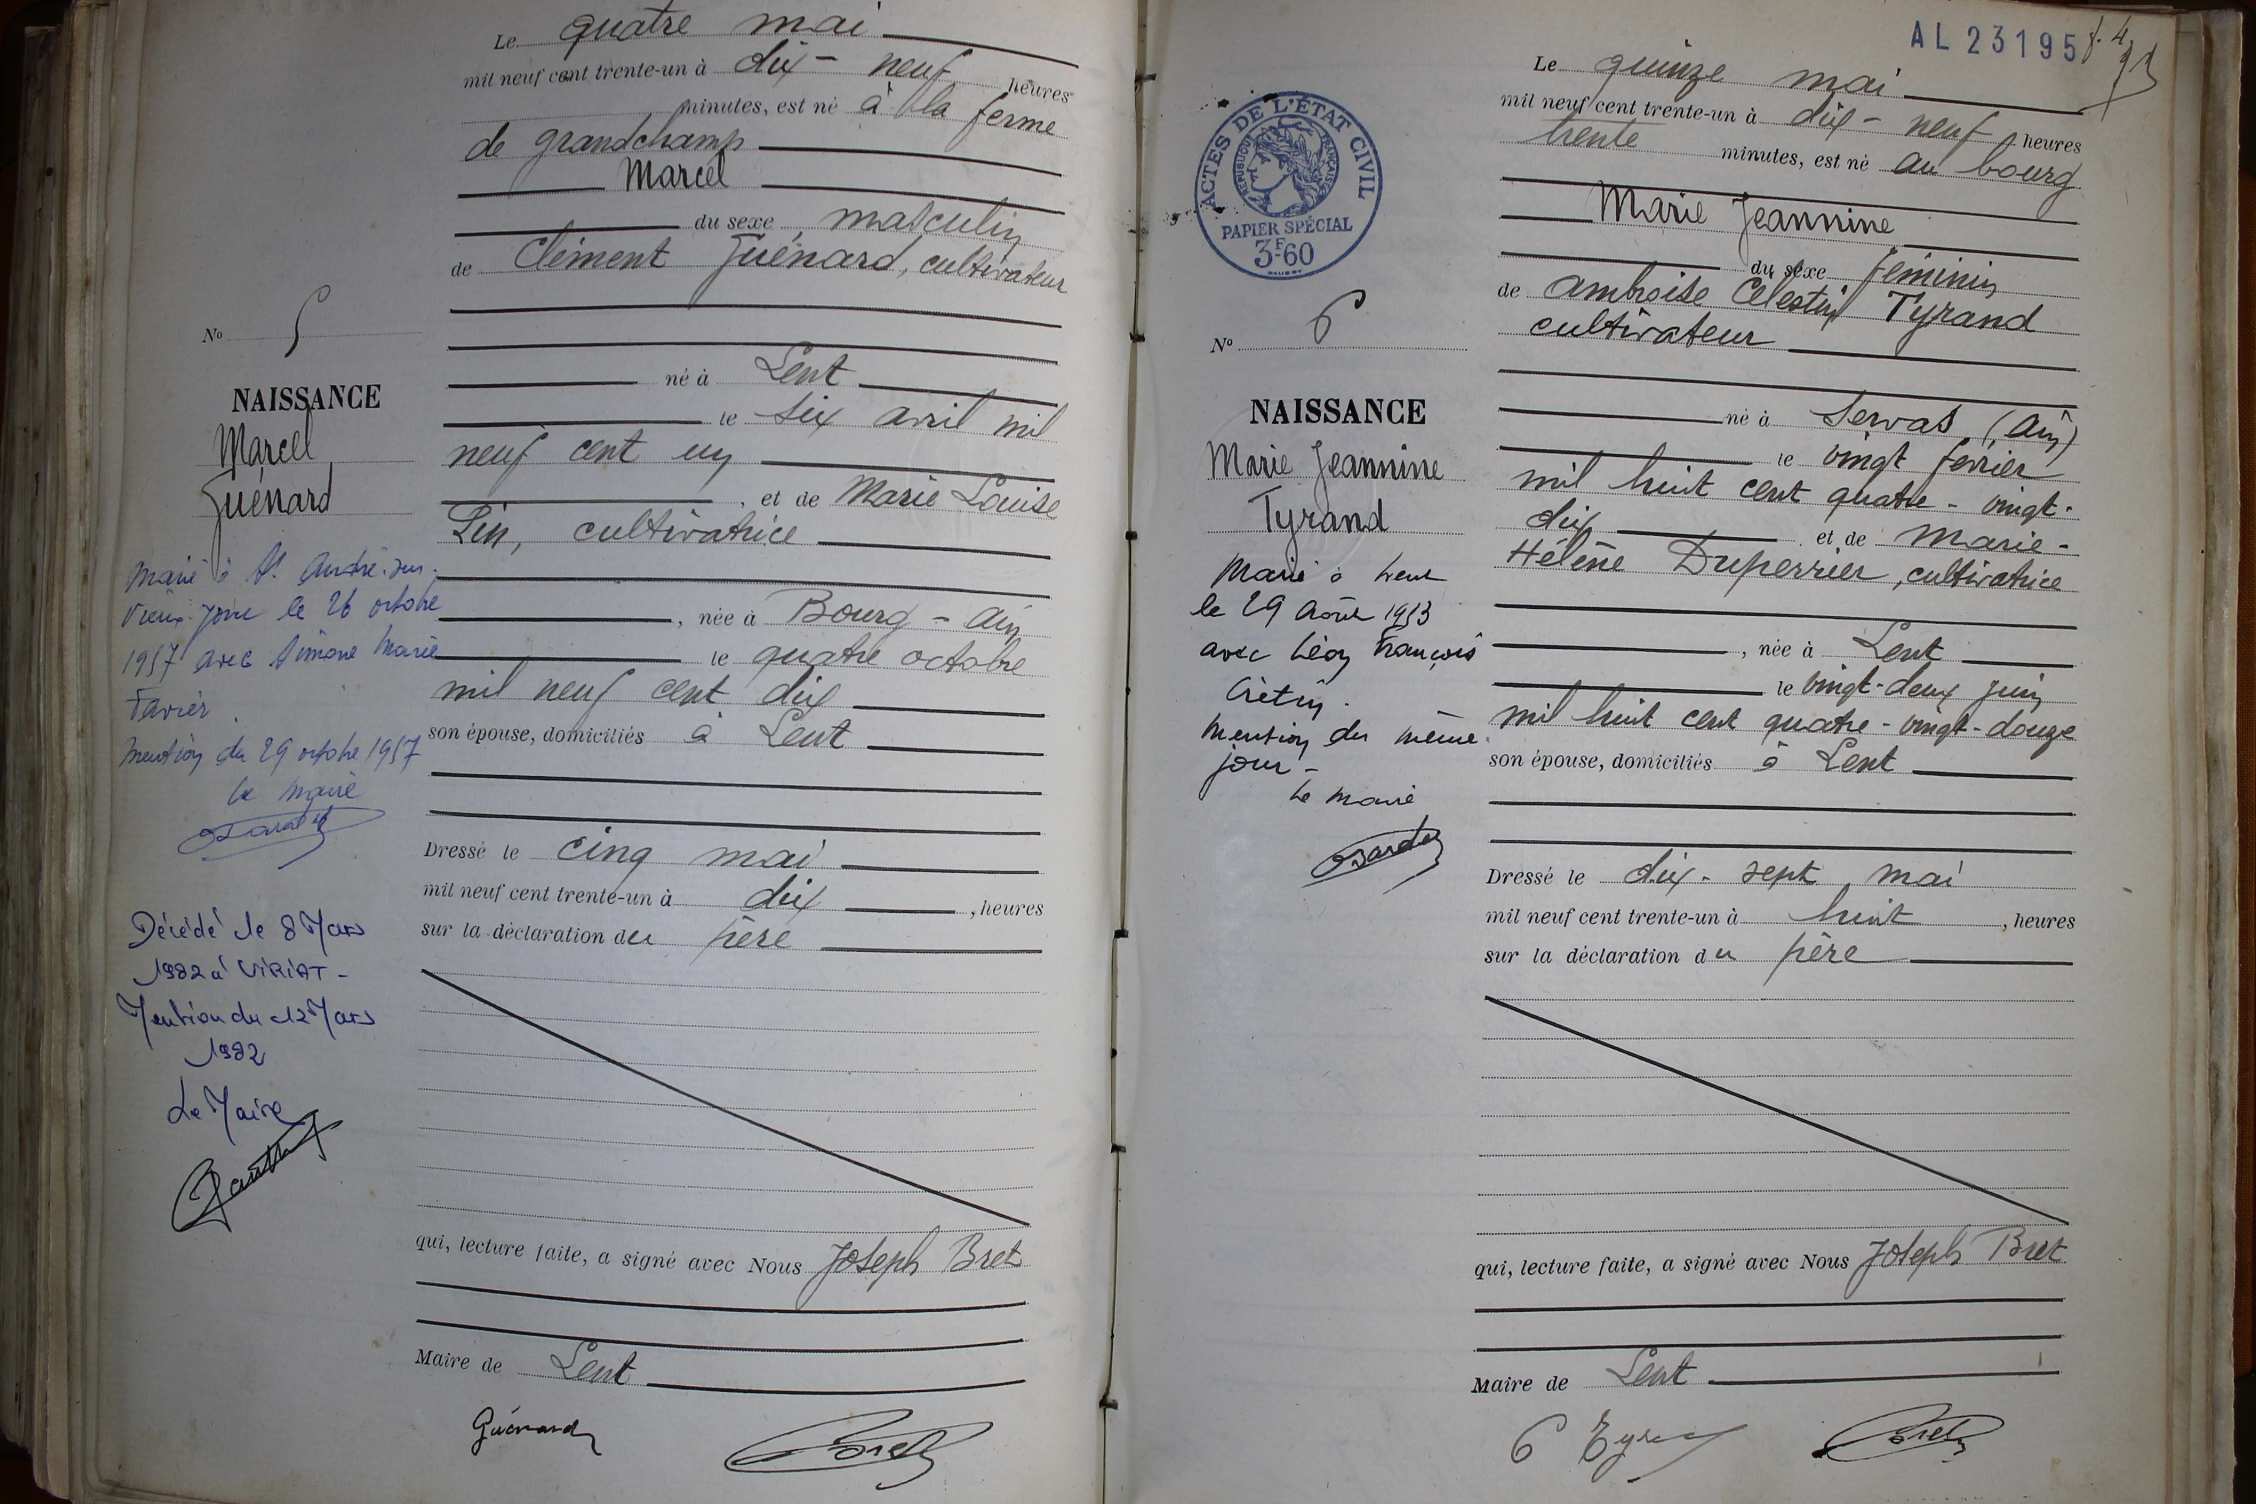 Le quatre mai
mil neuf cent trente-un à dix-neuf heures
minutes, est né à la ferme
de grandchamp
Marcel
du sexe masculin
de Clément Guénard, cultivateur
né à Lent
le six avril mil
neuf cent un
et de Marie Louise
Pin, cultivatrice
, née à Bourg - Ain
le quatre octobre
mil neuf cent dix
son épouse, domiciliés à Lent
Dressé le cinq mai
mil neuf cent trente-un à dix , heures
sur la déclaration du père
qui, lecture faite, a signé avec Nous Joseph Bret
Maire de Lent
Guénard
Bret
No 5
NAISSANCE
Marcel
Guénard
Marié à St. André-sur-
Vieux-Jonc le 26 octobre
1957 avec Simone Marie
Favier.
Mention du 29 octobre 1957
Le Maire
Décédé le 8 Mars
1982 à VIRIAT -
Mention du 12 Mars
1982
Le Maire
AL 23195
Le quinze mai
mil neuf cent trente-un à dix-neuf heures
trente minutes, est né au bourg
Marie Jeannine
du sexe féminin
de Ambroise Célestin Tyrand
cultivateur
né à Servas (Ain)
le vingt février
mil huit cent quatre-vingt-
dix et de Marie-
Hélène Duperrier, cultivatrice
, née à Lent
le vingt-deux juin
mil huit cent quatre-vingt-douze
son épouse, domiciliés à Lent
Dressé le dix-sept mai
mil neuf cent trente-un à huit , heures
sur la déclaration du père
qui, lecture faite, a signé avec Nous Joseph Bret
Maire de Lent
Bret
ACTES DE L'ÉTAT CIVIL
RÉPUBLIQUE FRANÇAISE
PAPIER SPÉCIAL
3F60
No 6
NAISSANCE
Marie Jeannine
Tyrand
Marié à Lent
le 29 Août 1953
avec Léon François
Crétin.
Mention du même
jour -
Le Maire